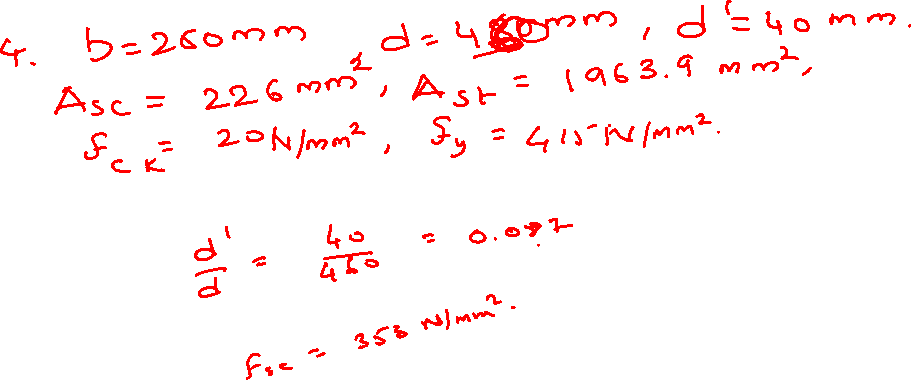 4. b=260mm, d=460mm, d'=40mm.
Asc = 226 mm², Ast = 1963.9 mm²,
fck = 20N/mm², fy = 415N/mm².
d'/d = 40/460 = 0.0
fsc = 353 N/mm².